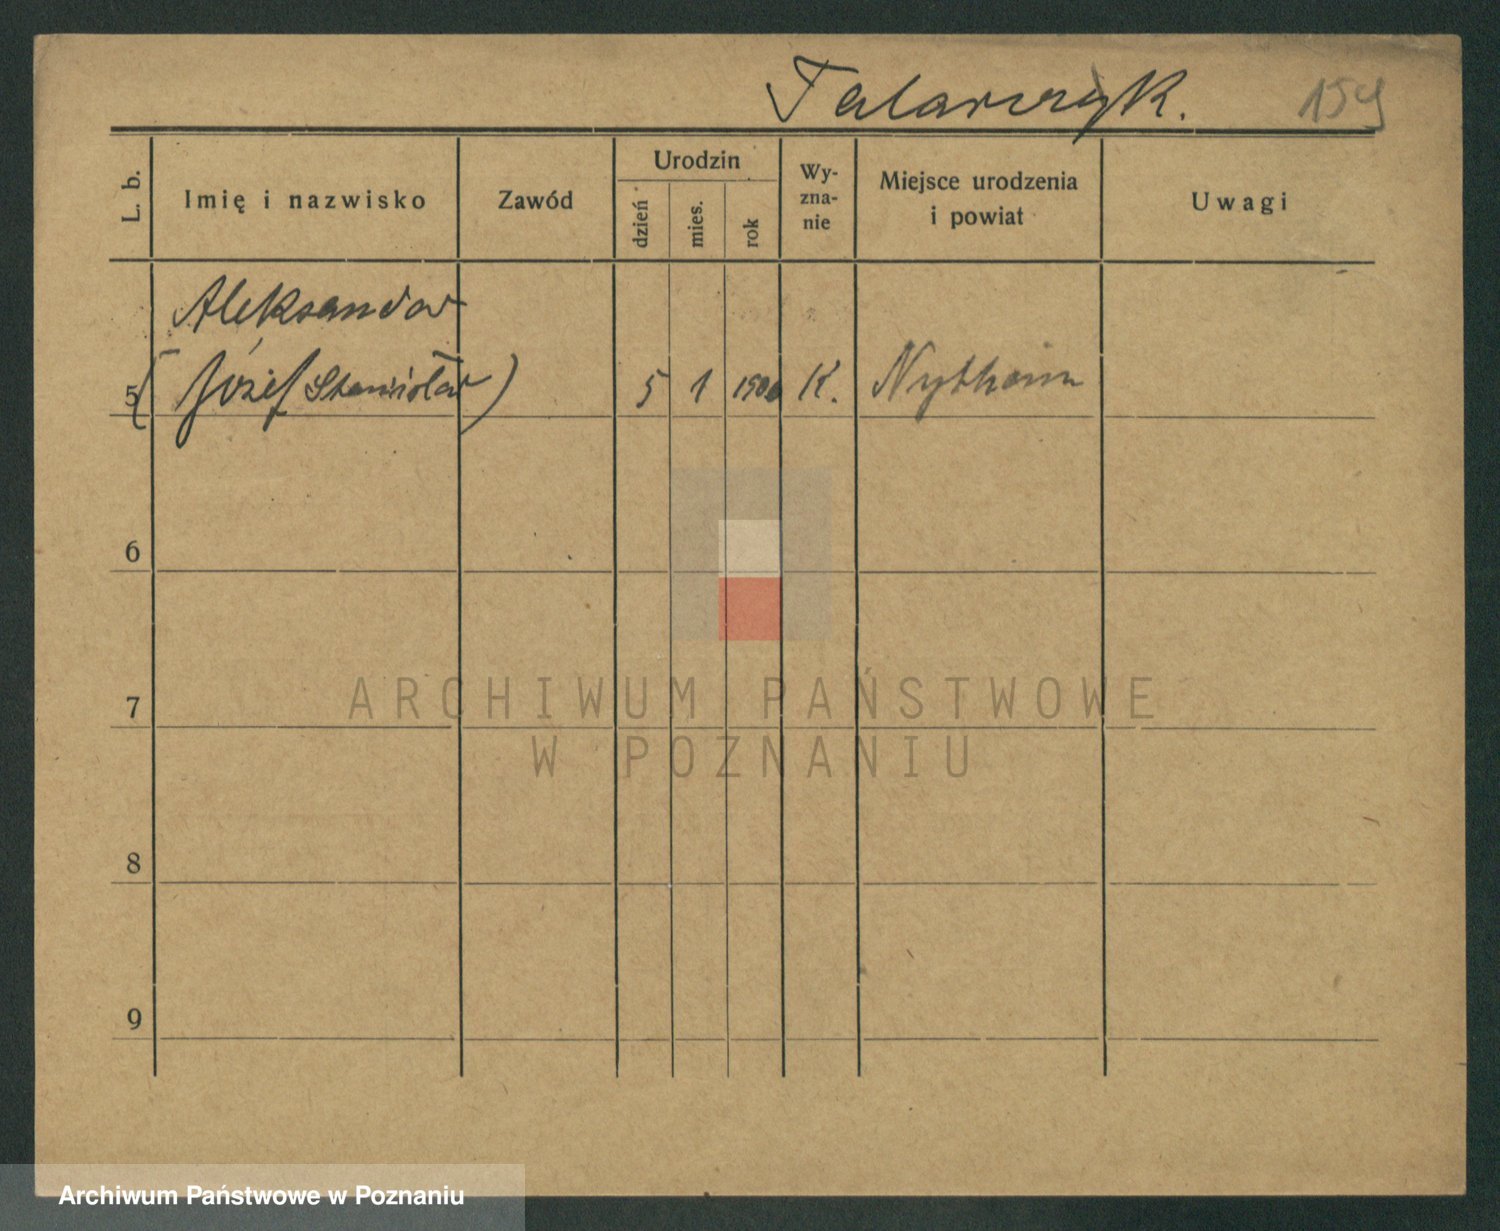 Talarczyk. 159
L. b.
Imię i nazwisko
Zawód
Urodzin
dzień
mies.
rok
Wy-
zna-
nie
Miejsce urodzenia
i powiat
Uwagi
Aleksandar
5 (Józef Stanisław) 5 1 K.
6
7
8
9
ARCHIWUM PAŃSTWOWE
W POZNANIU
Archiwum Państwowe w Poznaniu